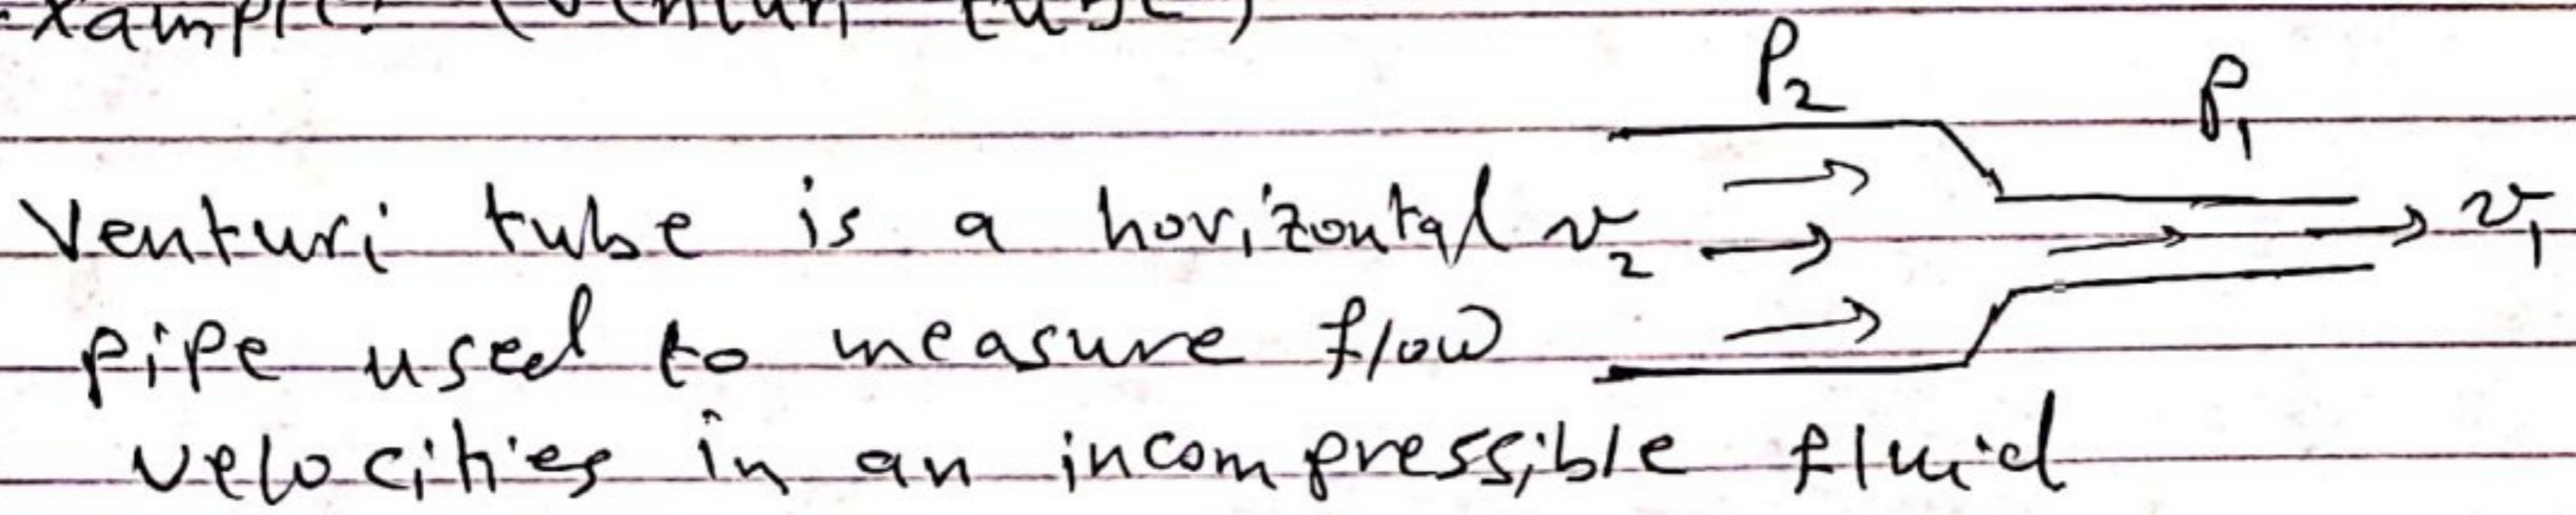 Example: (Venturi tube)
P2
P1
Venturi tube is a horizontal v2
v1
pipe used to measure flow
velocities in an incompressible fluid